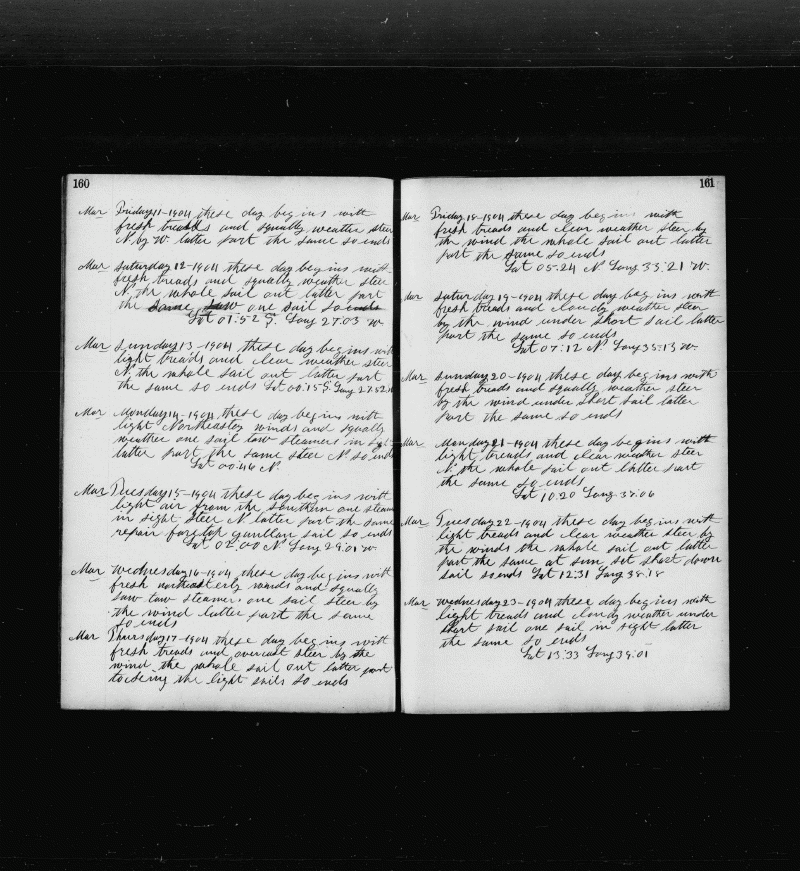 160
Mar Friday 11-1904 these day begins with
fresh treads and squally weather steer
N. by W. latter part the same so ends
Mar Saturday 12-1904 these day begins with
fresh treads and squally weather steer
N. the whole sail out latter part
the same saw one sail so ends
Lat 01:52 S. Long 27:03 W
Mar Sunday 13-1904 these day begins with
light treads and clear weather steer
N. the whole sail out latter part
the same so ends Lat 00:15 S. Long 27:52 W
Mar Monday 14-1904 these day begins with
light Northeastly winds and squally
weather one sail tow steamers in sight
latter part the same steer N. so ends
Lat 00:40 N.
Mar Tuesday 15-1904 these day begins with
light air from the southern one steam
in sight steer N. latter part the same
repair foretop gantlan sail so ends
Lat 02:00 N. Long 29:01 W
Mar Wednesday 16-1904 these day begins with
fresh northeasterly winds and squally
saw tow steamer one sail steer by
the wind latter part the same
so ends
Mar Thursday 17-1904 these day begins with
fresh treads and overcast steer by the
wind the whole sail out latter part
the light sails so ends
161
Mar Friday 18-1904 these day begins with
fresh treads and clear weather steer by
the wind the whole sail out latter
part the same so ends
Lat 05:24 N. Long 33:21 W.
Mar Saturday 19-1904 these day begins with
fresh treads and cloudy weather steer
by the wind under short sail latter
part the same so ends
Lat 07:12 N. Long 35:13 W.
Mar Sunday 20-1904 these day begins with
fresh treads and squally weather steer
by the wind under short sail latter
part the same so ends
Mar Monday 21-1904 these day begins with
light treads and clear weather steer
N. the whole sail out latter part
the same so ends
Lat 10:20 Long 37:06
Mar Tuesday 22-1904 these day begins with
light treads and clear weather steer by
the winds the whole sail out latter
part the same at sun set short down
sail so ends Lat 12:31 Long 38:18
Mar Wednesday 23-1904 these day begins with
light treads and cloudy weather under
short sail one sail in sight latter
the same so ends
Lat 13:33 Long 39:01